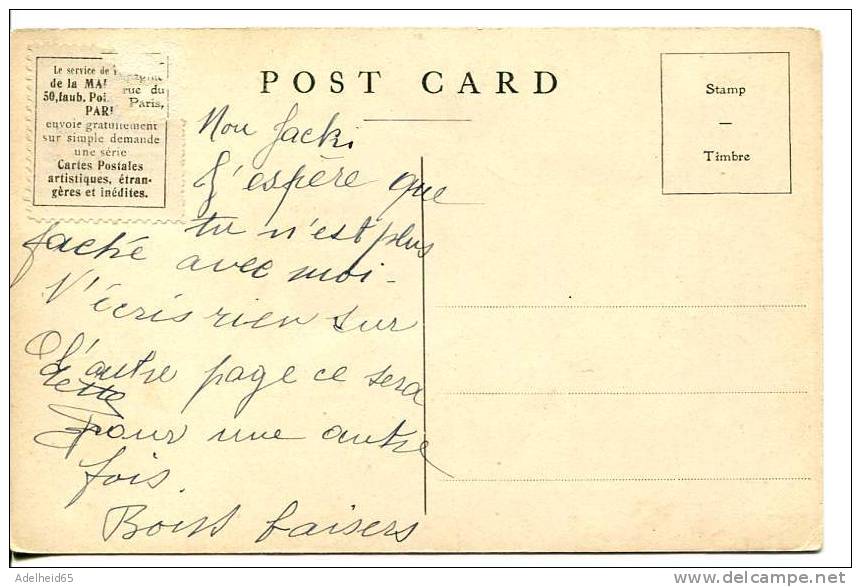 Le service de
de la MAI
50, faub. Poi
PARI
rue du
Paris,
envoie gratuitement
sur simple demande
une série
Cartes Postales
artistiques, étran-
gères et inédites.
POST CARD
Stamp
—
Timbre
Mon Jacki
J'espère que
tu n'est plus
faché avec moi -
N'écris rien sur
l'autre page ce sera
pour une autre
fois
baisers
Adelheid65
delcampe.net